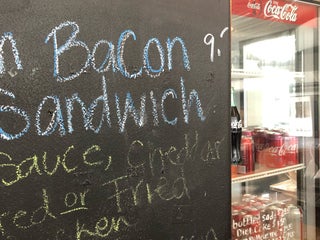 n Bacon 9.
Sandwich
Sauce, Cheddar
ed or Fried
ken
Coca-Cola
Coca-Cola
bottled soda
Diet Coke